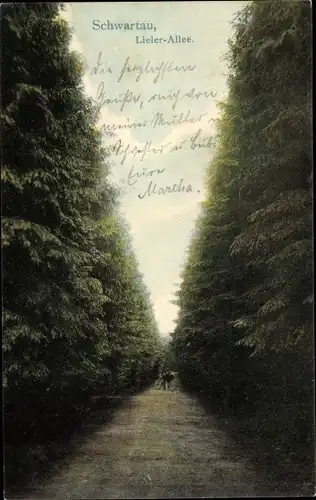 Schwartau,
Lieler-Allee.
Die herzlichsten
Grüße, auch von
meiner Mutter u
Schwester u. Bubi
Eure
Martha.